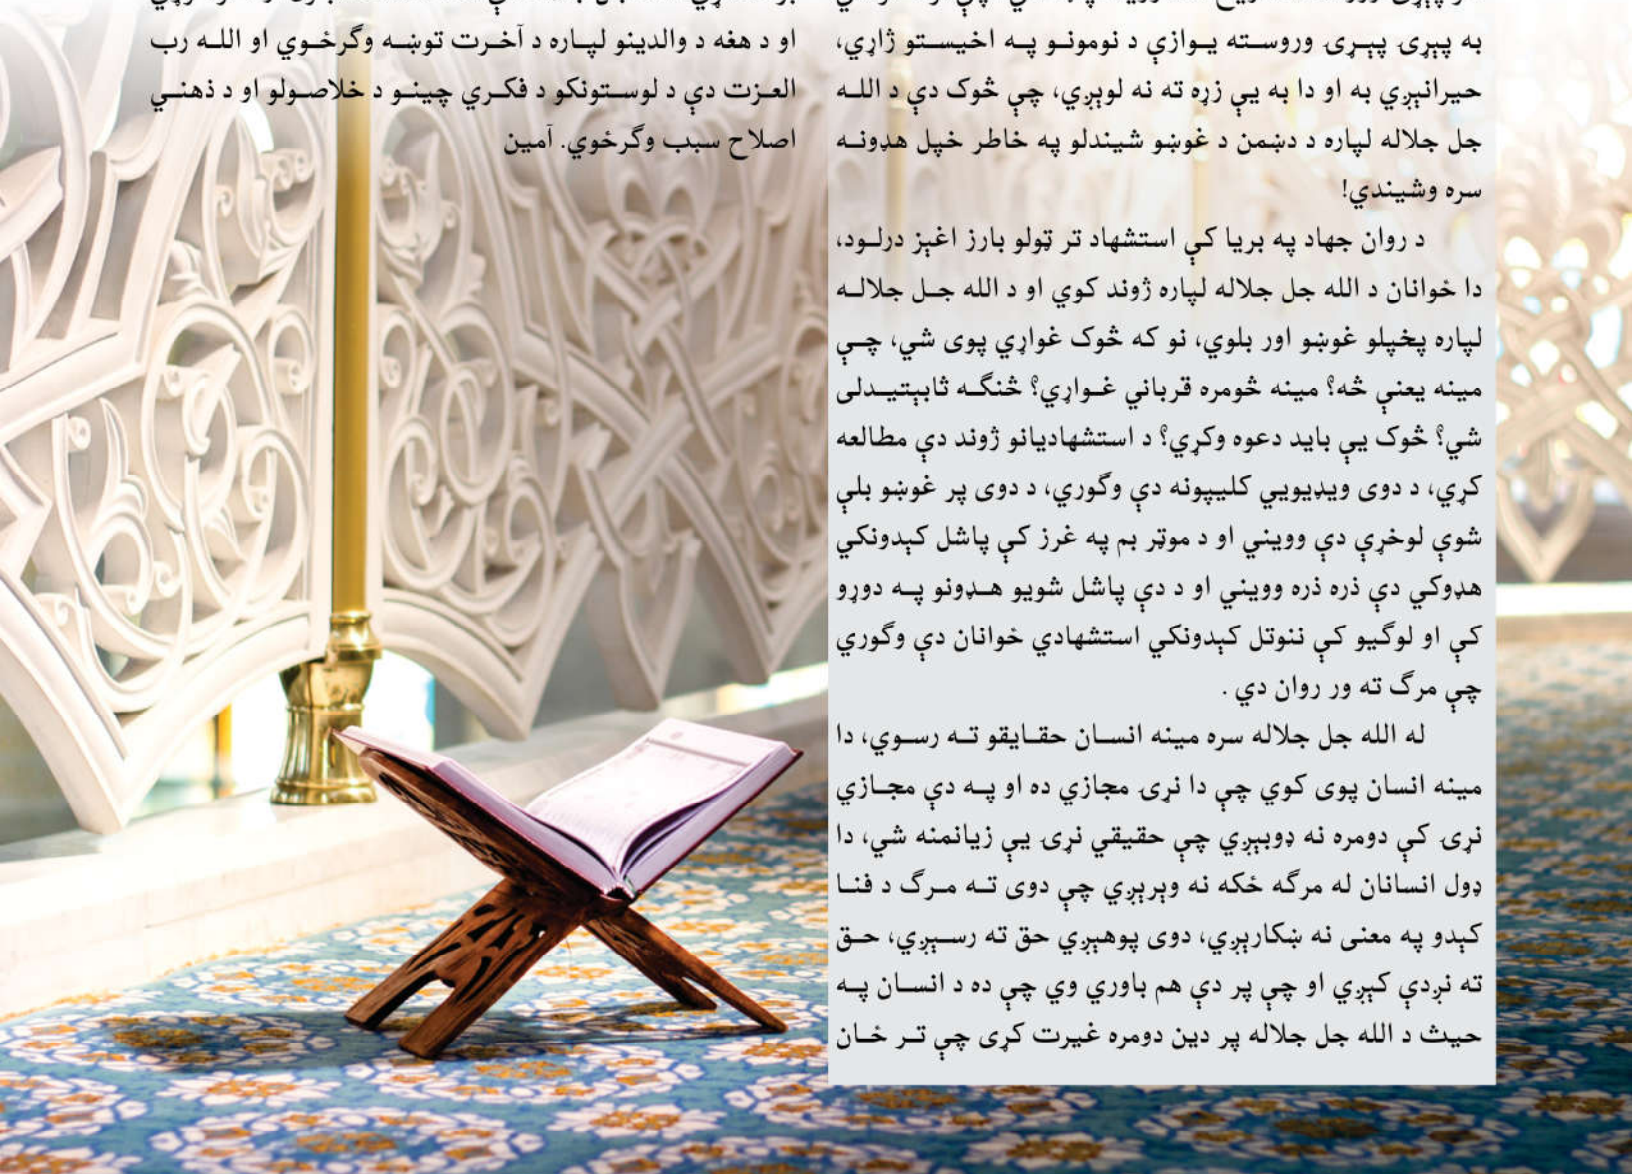 به پېړۍ پېړۍ وروسته يوازې د نومونو په اخيستو ژاړي،
حيرانېږي به او دا به يې زړه ته نه لوېږي، چې څوک دې د الله
جل جلاله لپاره د دښمن د غوښو شيندلو په خاطر خپل هډونه
سره وشيندي!
د روان جهاد په بريا کې استشهاد تر ټولو بارز اغېز درلود،
دا ځوانان د الله جل جلاله لپاره ژوند کوي او د الله جل جلاله
لپاره پخپلو غوښو اور بلوي، نو که څوک غواړي پوی شي، چې
مينه يعنې څه؟ مينه څومره قرباني غواړي؟ څنگه ثابېتيدلی
شي؟ څوک يې بايد دعوه وکړي؟ د استشهاديانو ژوند دې مطالعه
کړي، د دوی ويډيويي کليپونه دې وگوري، د دوی پر غوښو بلې
شوې لوخړې دې وويني او د موټر بم په غرز کې پاشل کېدونکي
هډوکي دې ذره ذره وويني او د دې پاشل شويو هډونو په دوړو
کې او لوگيو کې ننوتل کېدونکي استشهادي ځوانان دې وگوري
چې مرگ ته ور روان دي .
له الله جل جلاله سره مينه انسان حقايقو ته رسوي، دا
مينه انسان پوی کوي چې دا نړۍ مجازي ده او په دې مجازي
نړۍ کې دومره نه ډوبېږي چې حقيقي نړۍ يې زيانمنه شي، دا
ډول انسانان له مرگه ځکه نه وېرېږي چې دوی ته مرگ د فنا
کېدو په معنی نه ښکارېږي، دوی پوهېږي حق ته رسېږي، حق
ته نږدې کېږي او چې پر دې هم باوري وي چې ده د انسان په
حيث د الله جل جلاله پر دين دومره غيرت کړی چې تر ځان
او د هغه د والدينو لپاره د آخرت توښه وگرځوي او الله رب
العزت دې د لوستونکو د فکري چينو د خلاصولو او د ذهني
اصلاح سبب وگرځوي. آمين